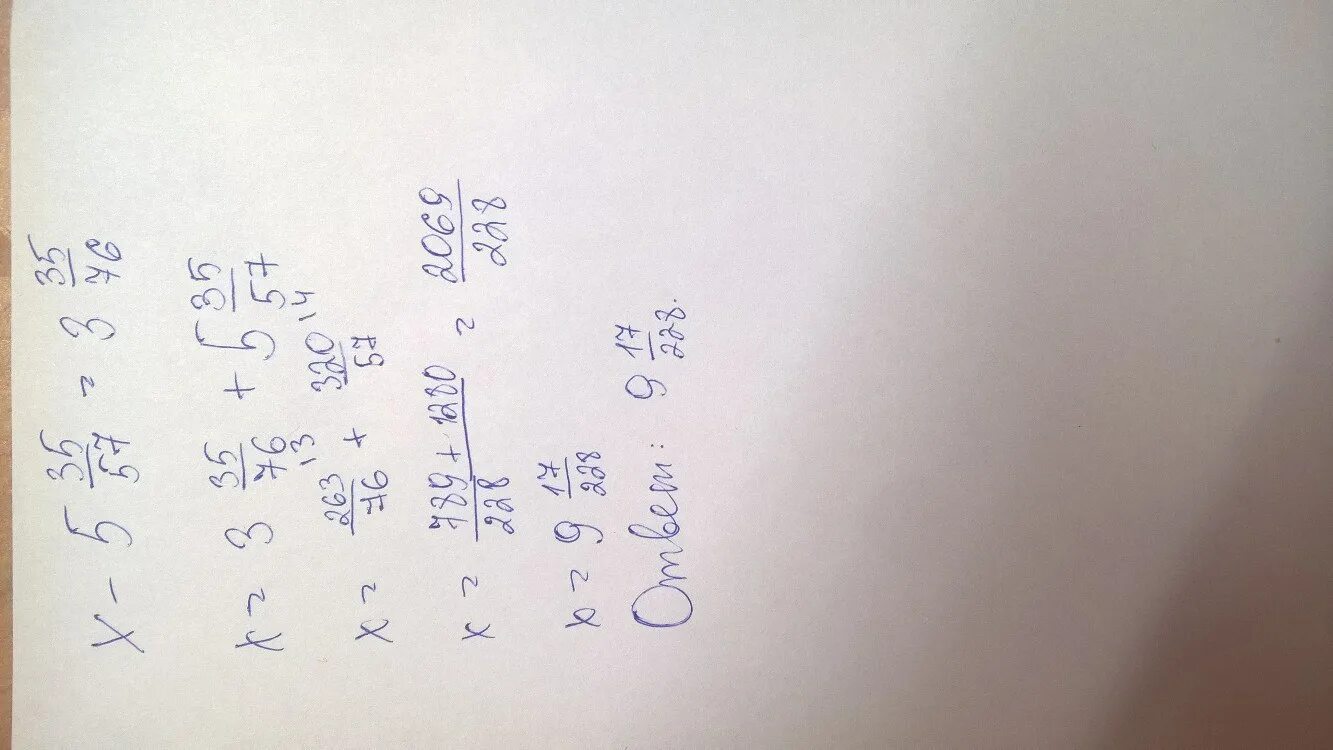 x - 5 35/57 = 3 35/76
x = 3 35/76 + 5 35/57
x = 263/76 \3 + 320/57 \4
x = 789 + 1280/228 = 2069/228
x = 9 17/228
Ответ: 9 17/228.